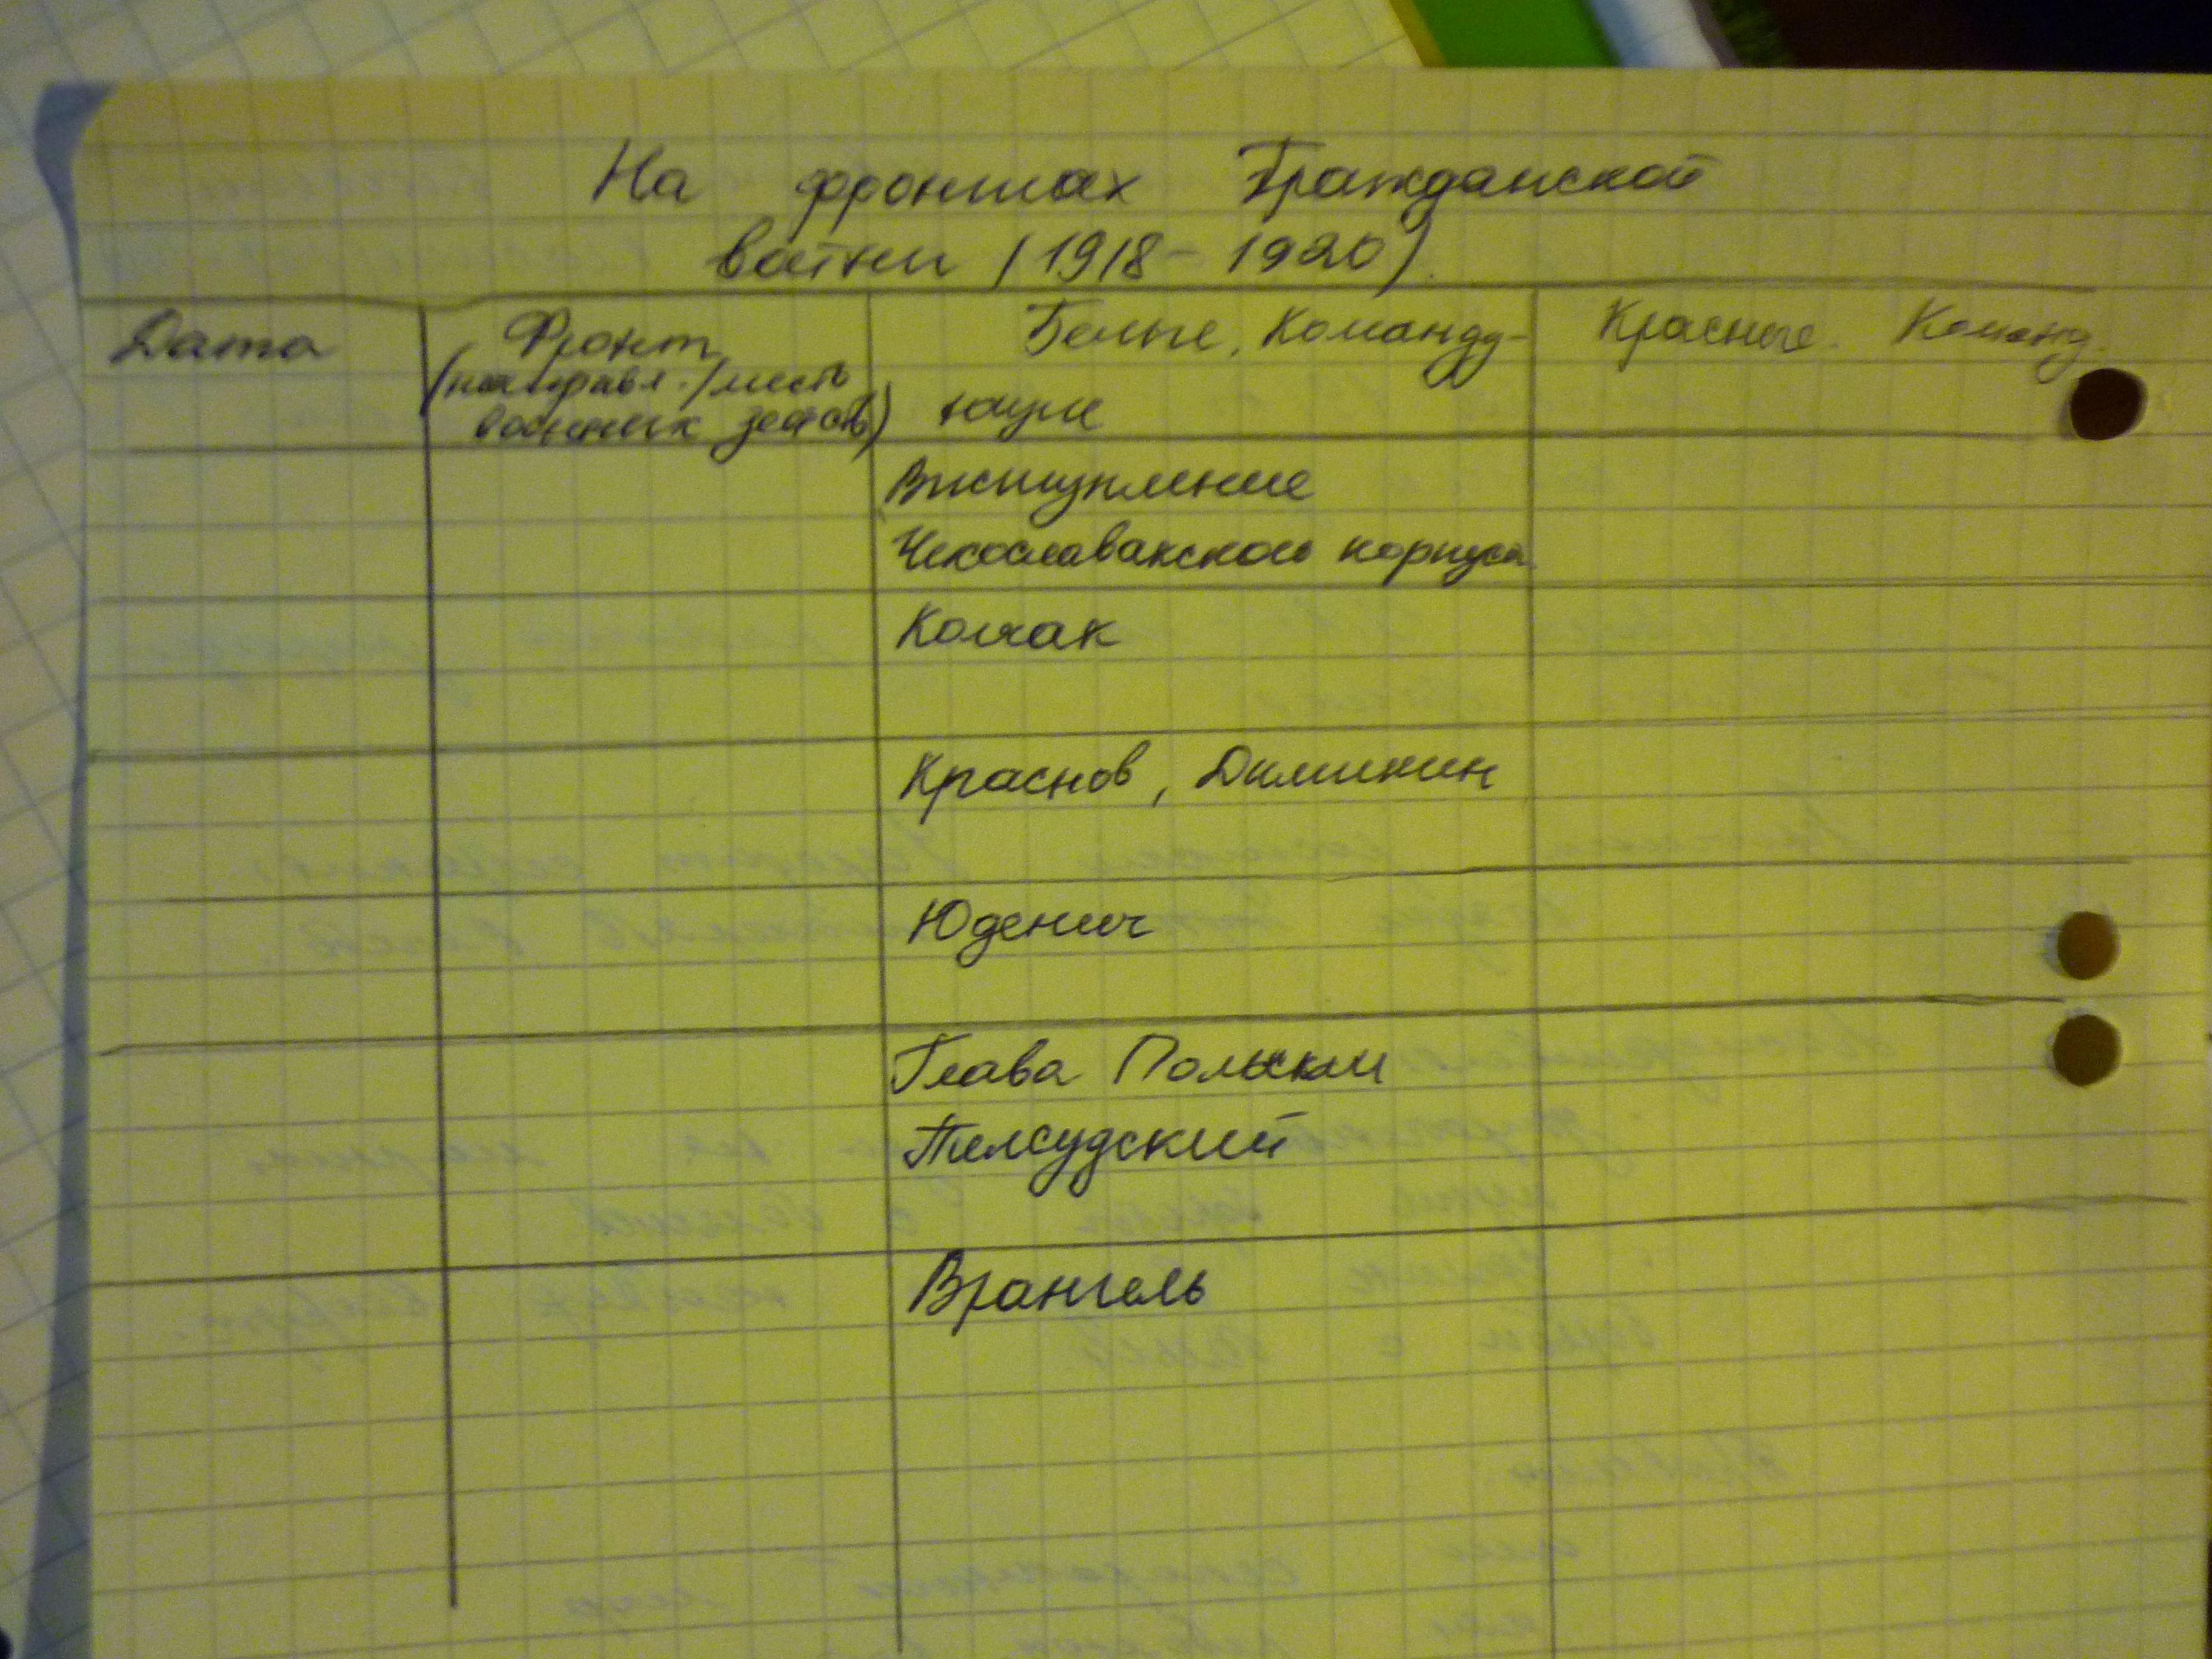 На фронтах Гражданской
войны (1918-1920).
Дата
Фронт
(направл./место
военных действ)
Белые. Команду-
ющие
Красные. Команд.
Выступление
Чехославакского корпуса
Колчак
Краснов, Деникин
Юденич
Глава Польши
Пилсудский
Врангель